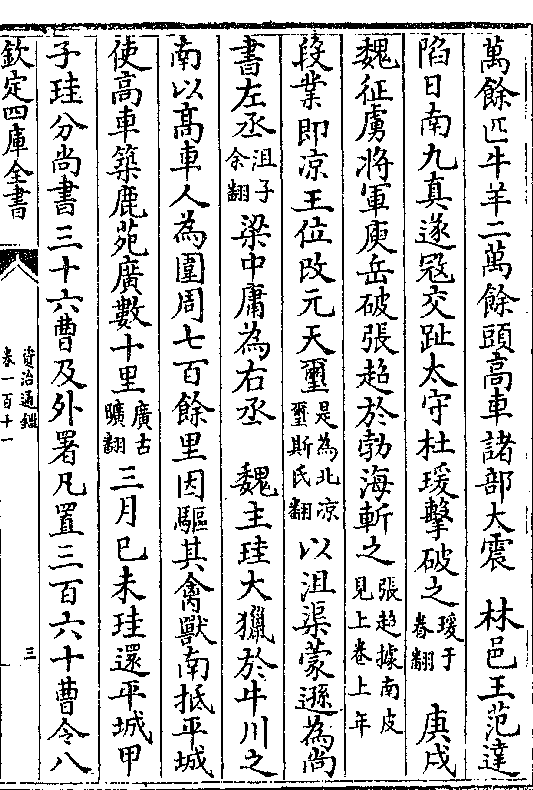 萬餘匹牛羊二萬餘頭高車諸部大震　林邑王范達
陷日南九真遂寇交趾太守杜瑗擊破之瑗于眷翻　庚戌
魏征虜將軍庾岳破張超於勃海斬之張超據南皮見上卷上年
段業即凉王位改元天璽是為北凉璽斯氏翻以沮渠蒙遜為尚
書左丞沮子余翻梁中庸為右丞　魏主珪大獵於牛川之
南以高車人為圍周七百餘里因驅其禽獸南抵平城
使高車築鹿苑廣數十里廣古曠翻三月己未珪還平城甲
子珪分尚書三十六曹及外署凡置三百六十曹令八
欽定四庫全書
資治通鑑
卷一百十一
三